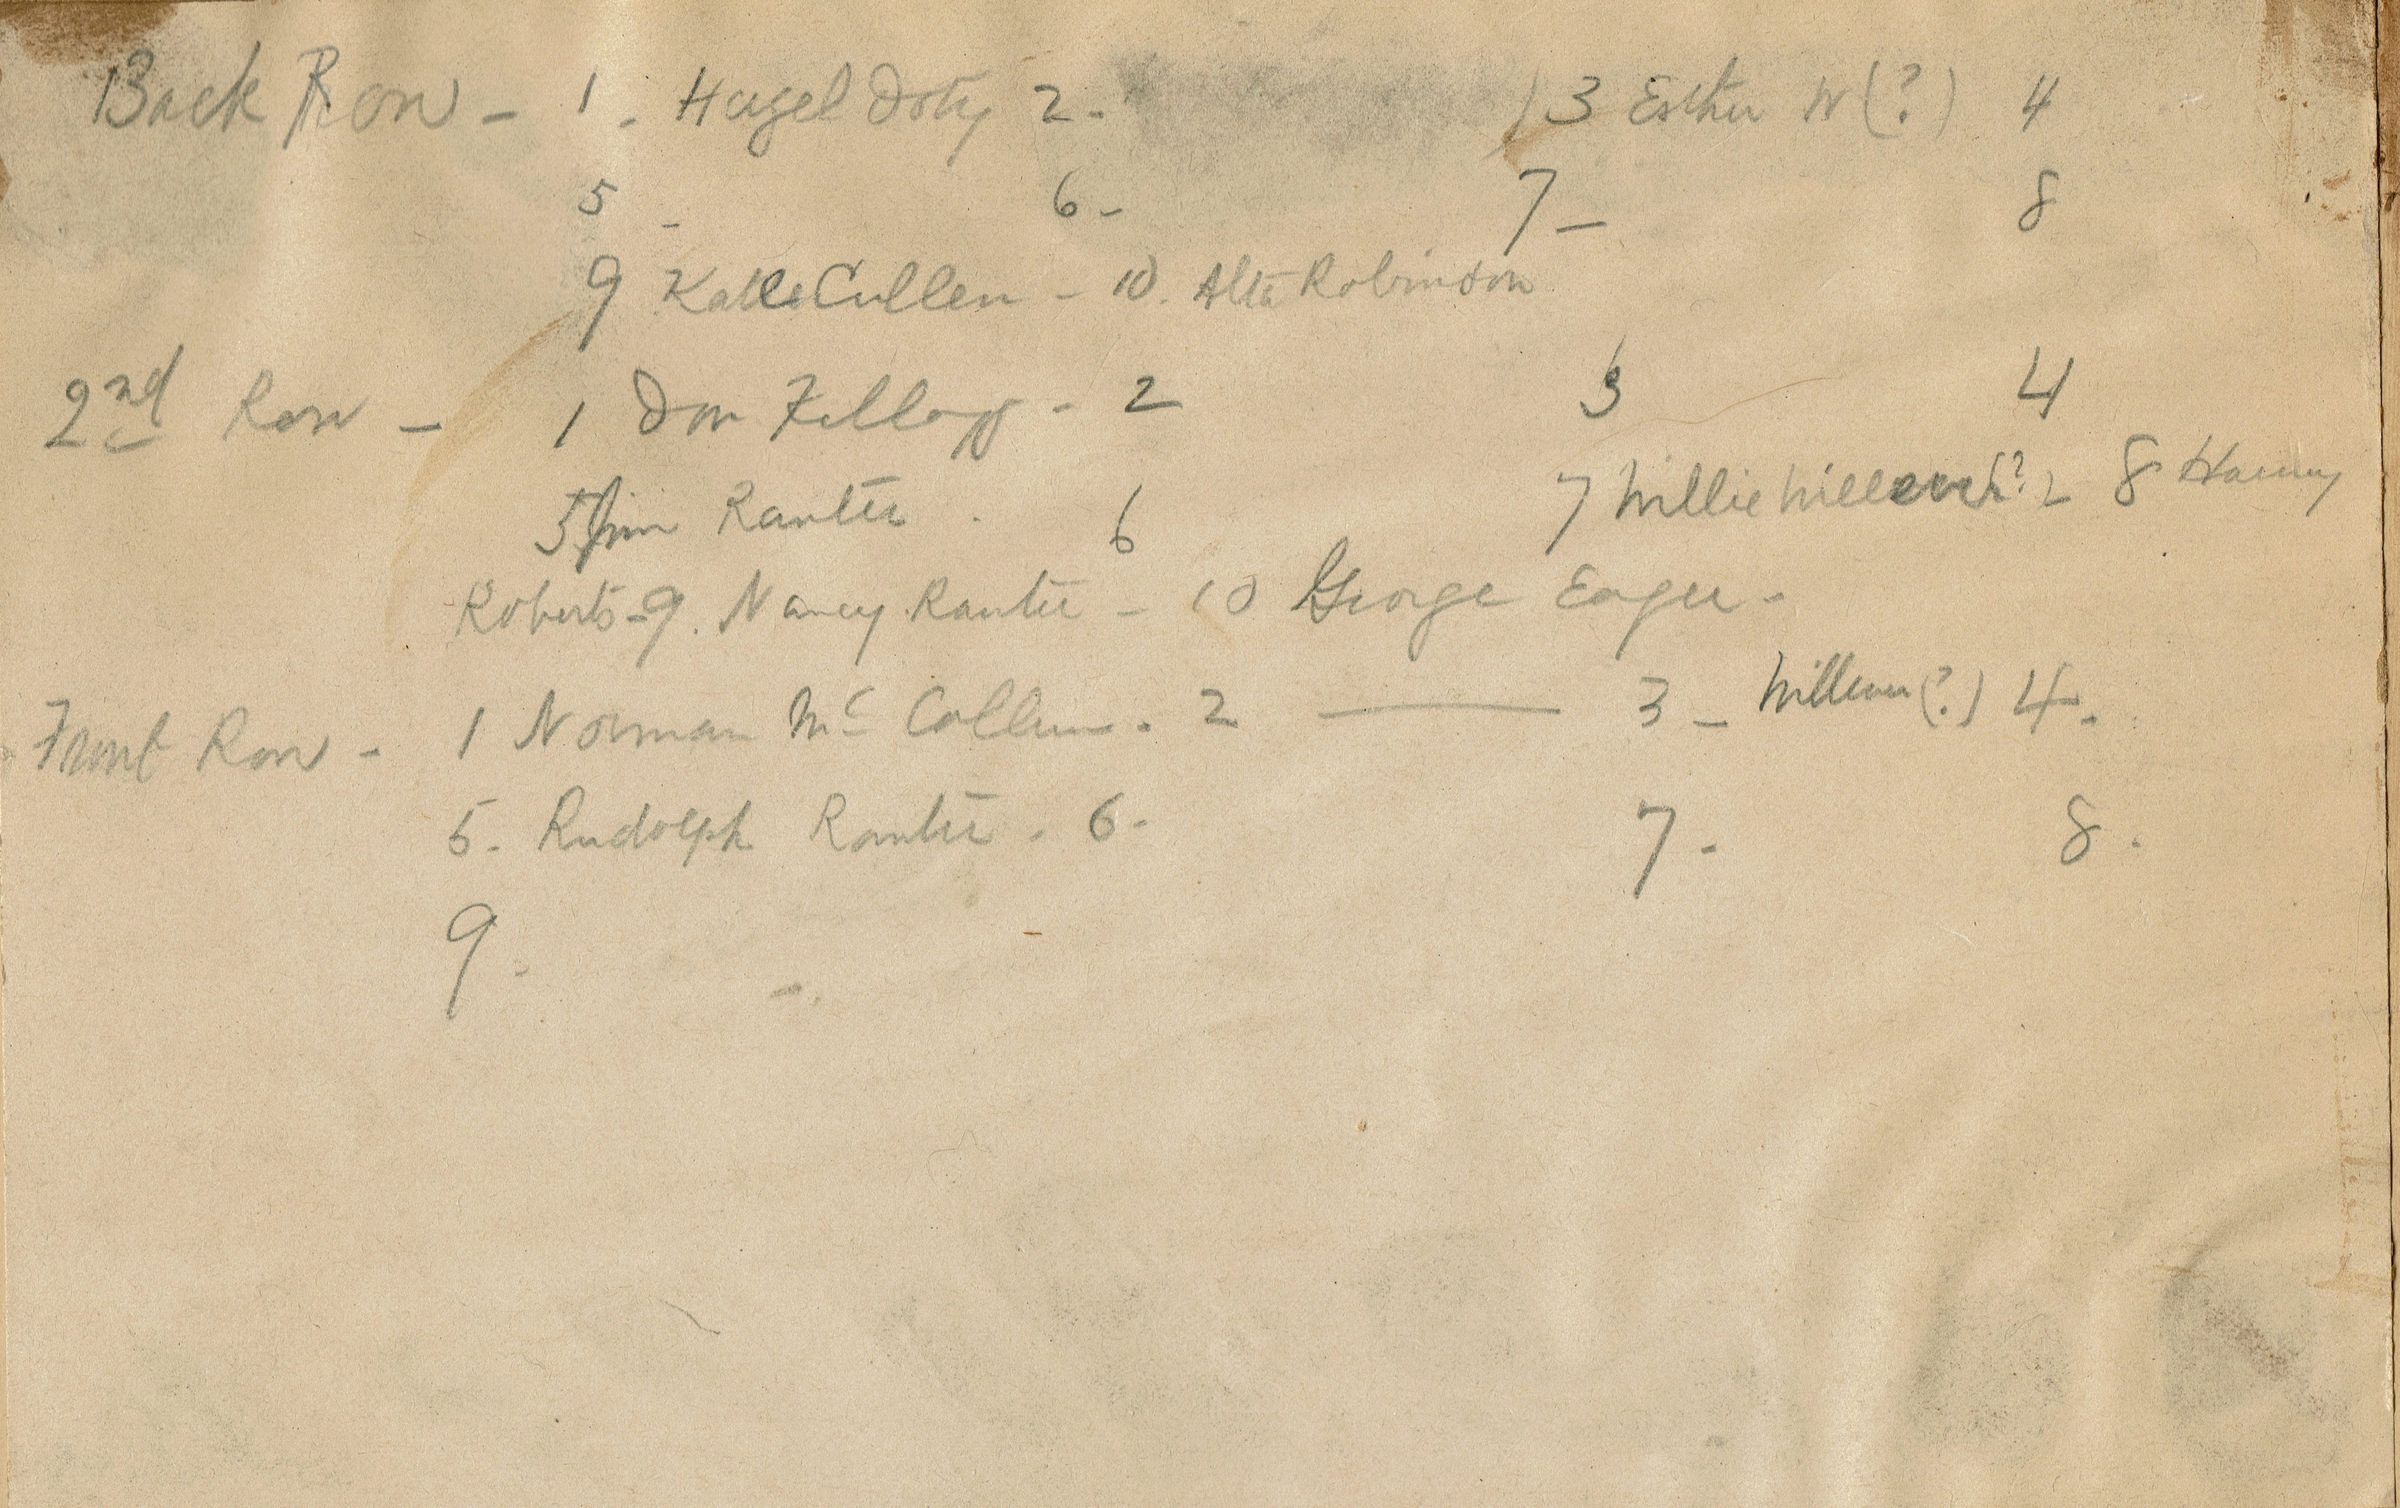 Back Row - 1. Hazel Doty 2. 3 Esther W (?) 4
5 - 6 - 7 - 8
9 Kate Cullen - 10. Alta Robinson
2nd Row - 1 Don Fellogg - 2 3 4
5 Jim Rantee . 6 7 Willie Willever(?) - 8 Harvey
Roberts - 9. Nancy Rantee - 10 George Eager -
Front Row - 1 Norman Mc Collum . 2 — 3 - Willever (?) 4.
5. Rudolph Rantee . 6. 7. 8.
9.